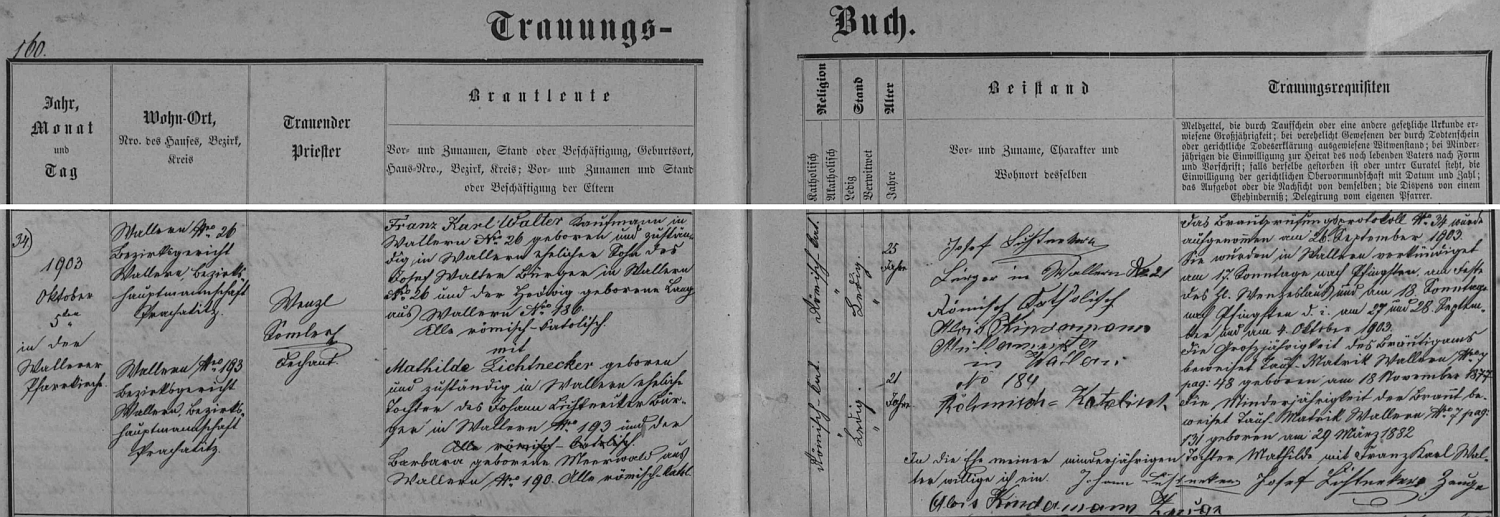 160.
Trauungs-
Buch.
Jahr,
Monat
und
Tag
Wohn-Ort,
Nro. des Hauses, Bezirk,
Kreis
Trauender
Priester
Brautleute
Vor- und Zunamen, Stand oder Beschäftigung, Geburtsort,
Haus-Nro., Bezirk, Kreis; Vor- und Zunamen und Stand
oder Beschäftigung der Eltern
Religion
Katholisch
Akatholisch
Stand
Ledig
Verwitwet
Alter
Jahre
Beistand
Vor- und Zuname, Charakter und
Wohnort desselben
Trauungsrequisiten
Meldzettel, die durch Taufschein oder eine andere gesetzliche Urkunde er-
wiesene Großjährigkeit; bei verehelicht Gewesenen der durch Todtenschein
oder gerichtliche Todeserklärung ausgewiesene Witwenstand; bei Minder-
jährigen die Einwilligung zur Heirat des noch lebenden Vaters nach Form
und Vorschrift; falls derselbe gestorben ist oder unter Curatel steht, die
Einwilligung der gerichtlichen Obervormundschaft mit Datum und Zahl;
das Aufgebot oder die Nachsicht von demselben; die Dispens von einem
Ehehinderniß; Delegirung vom eigenen Pfarrer.
34)
1903
Oktober
5ten
in der
Wallerer
Pfarrkirche.
Wallern Nro 26
Bezirksgericht
Wallern Bezirks-
hauptmannschaft
Prachatitz.
Wallern Nro 193
Bezirksgericht
Wallern, Bezirks-
hauptmannschaft
Prachatitz.
Wenzl
Dechant
Franz Karl Walter Kaufmann in
Wallern No. 26 geboren und zustän-
dig in Wallern ehelicher Sohn des
Josef Walter Bürger in Wallern
No. 26 und der Hedwig geborene Lang
aus Wallern No. 186.
Alle römisch-katolisch.
mit
Mathilde Lichtnecker geboren
und zuständig in Wallern eheliche
Tochter des Johann Lichtnecker Bür-
ger in Wallern Nro 193 und der
Alle römisch-katolisch.
Barbara geborene Meerwald aus
Wallern Nro 190. Alle römisch-katol
Römisch-kat.
Ledig.
25
Jahre
Römisch-kat.
Ledig.
21
Jahre
Josef Lichtnecker
Bürger in Wallern No 21
Römisch Katholisch
Alois Kindermann
in Wallern
No 184
Römisch-Katolisch
Das Brautprüfungsprotokoll No. 34 wurde
aufgenommen am 26. September 1903.
Sie wurden in Wallern verkündiget
am 17. Sonntage nach Pfingsten, am Feste
des hl. Wenzeslaus und am 18. Sonntage
nach Pfingsten d. i. am 27 und 28. Septem-
ber und am 4. Oktober 1903.
Die Grosjährigkeit des Bräutigams
beweiset Tauf-Matrik Wallern
pag. 48 geboren am 18 November 1877.
Die Minderjährigkeit der Braut be-
weiset Tauf-Matrik Wallern pag.
131 geboren am 29 März 1882
In die Ehe meiner minderjährigen Tochter Mathilde mit Franz Karl Wal-
ter willige ich ein. Johann Lichtnecker Josef Lichtnecker Zeuge
Alois Kindermann Zeuge